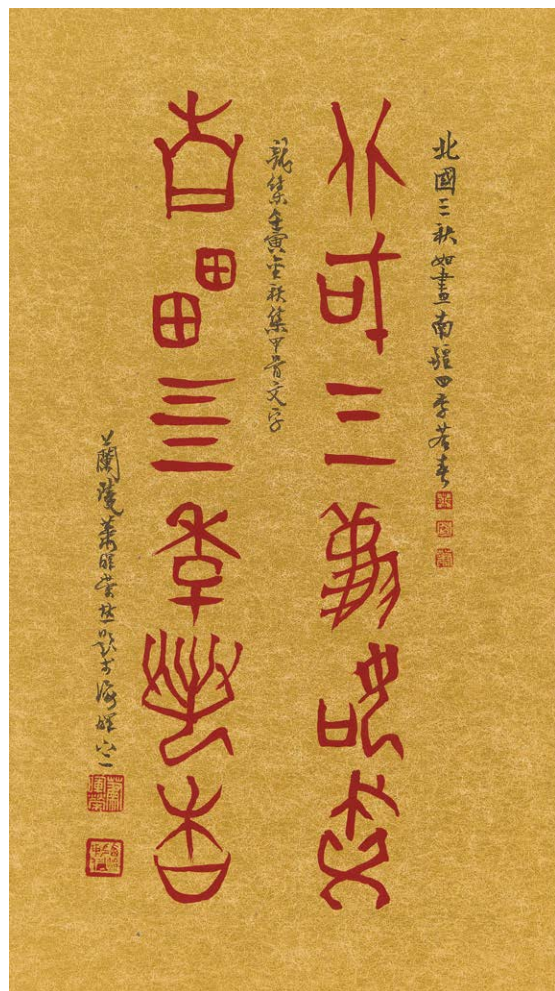 北國三秋如畫南疆四季若春
北國三秋如畫
龍集壬寅金秋集甲骨文字
南疆四季若春
蘭陵蕭暉榮並題於